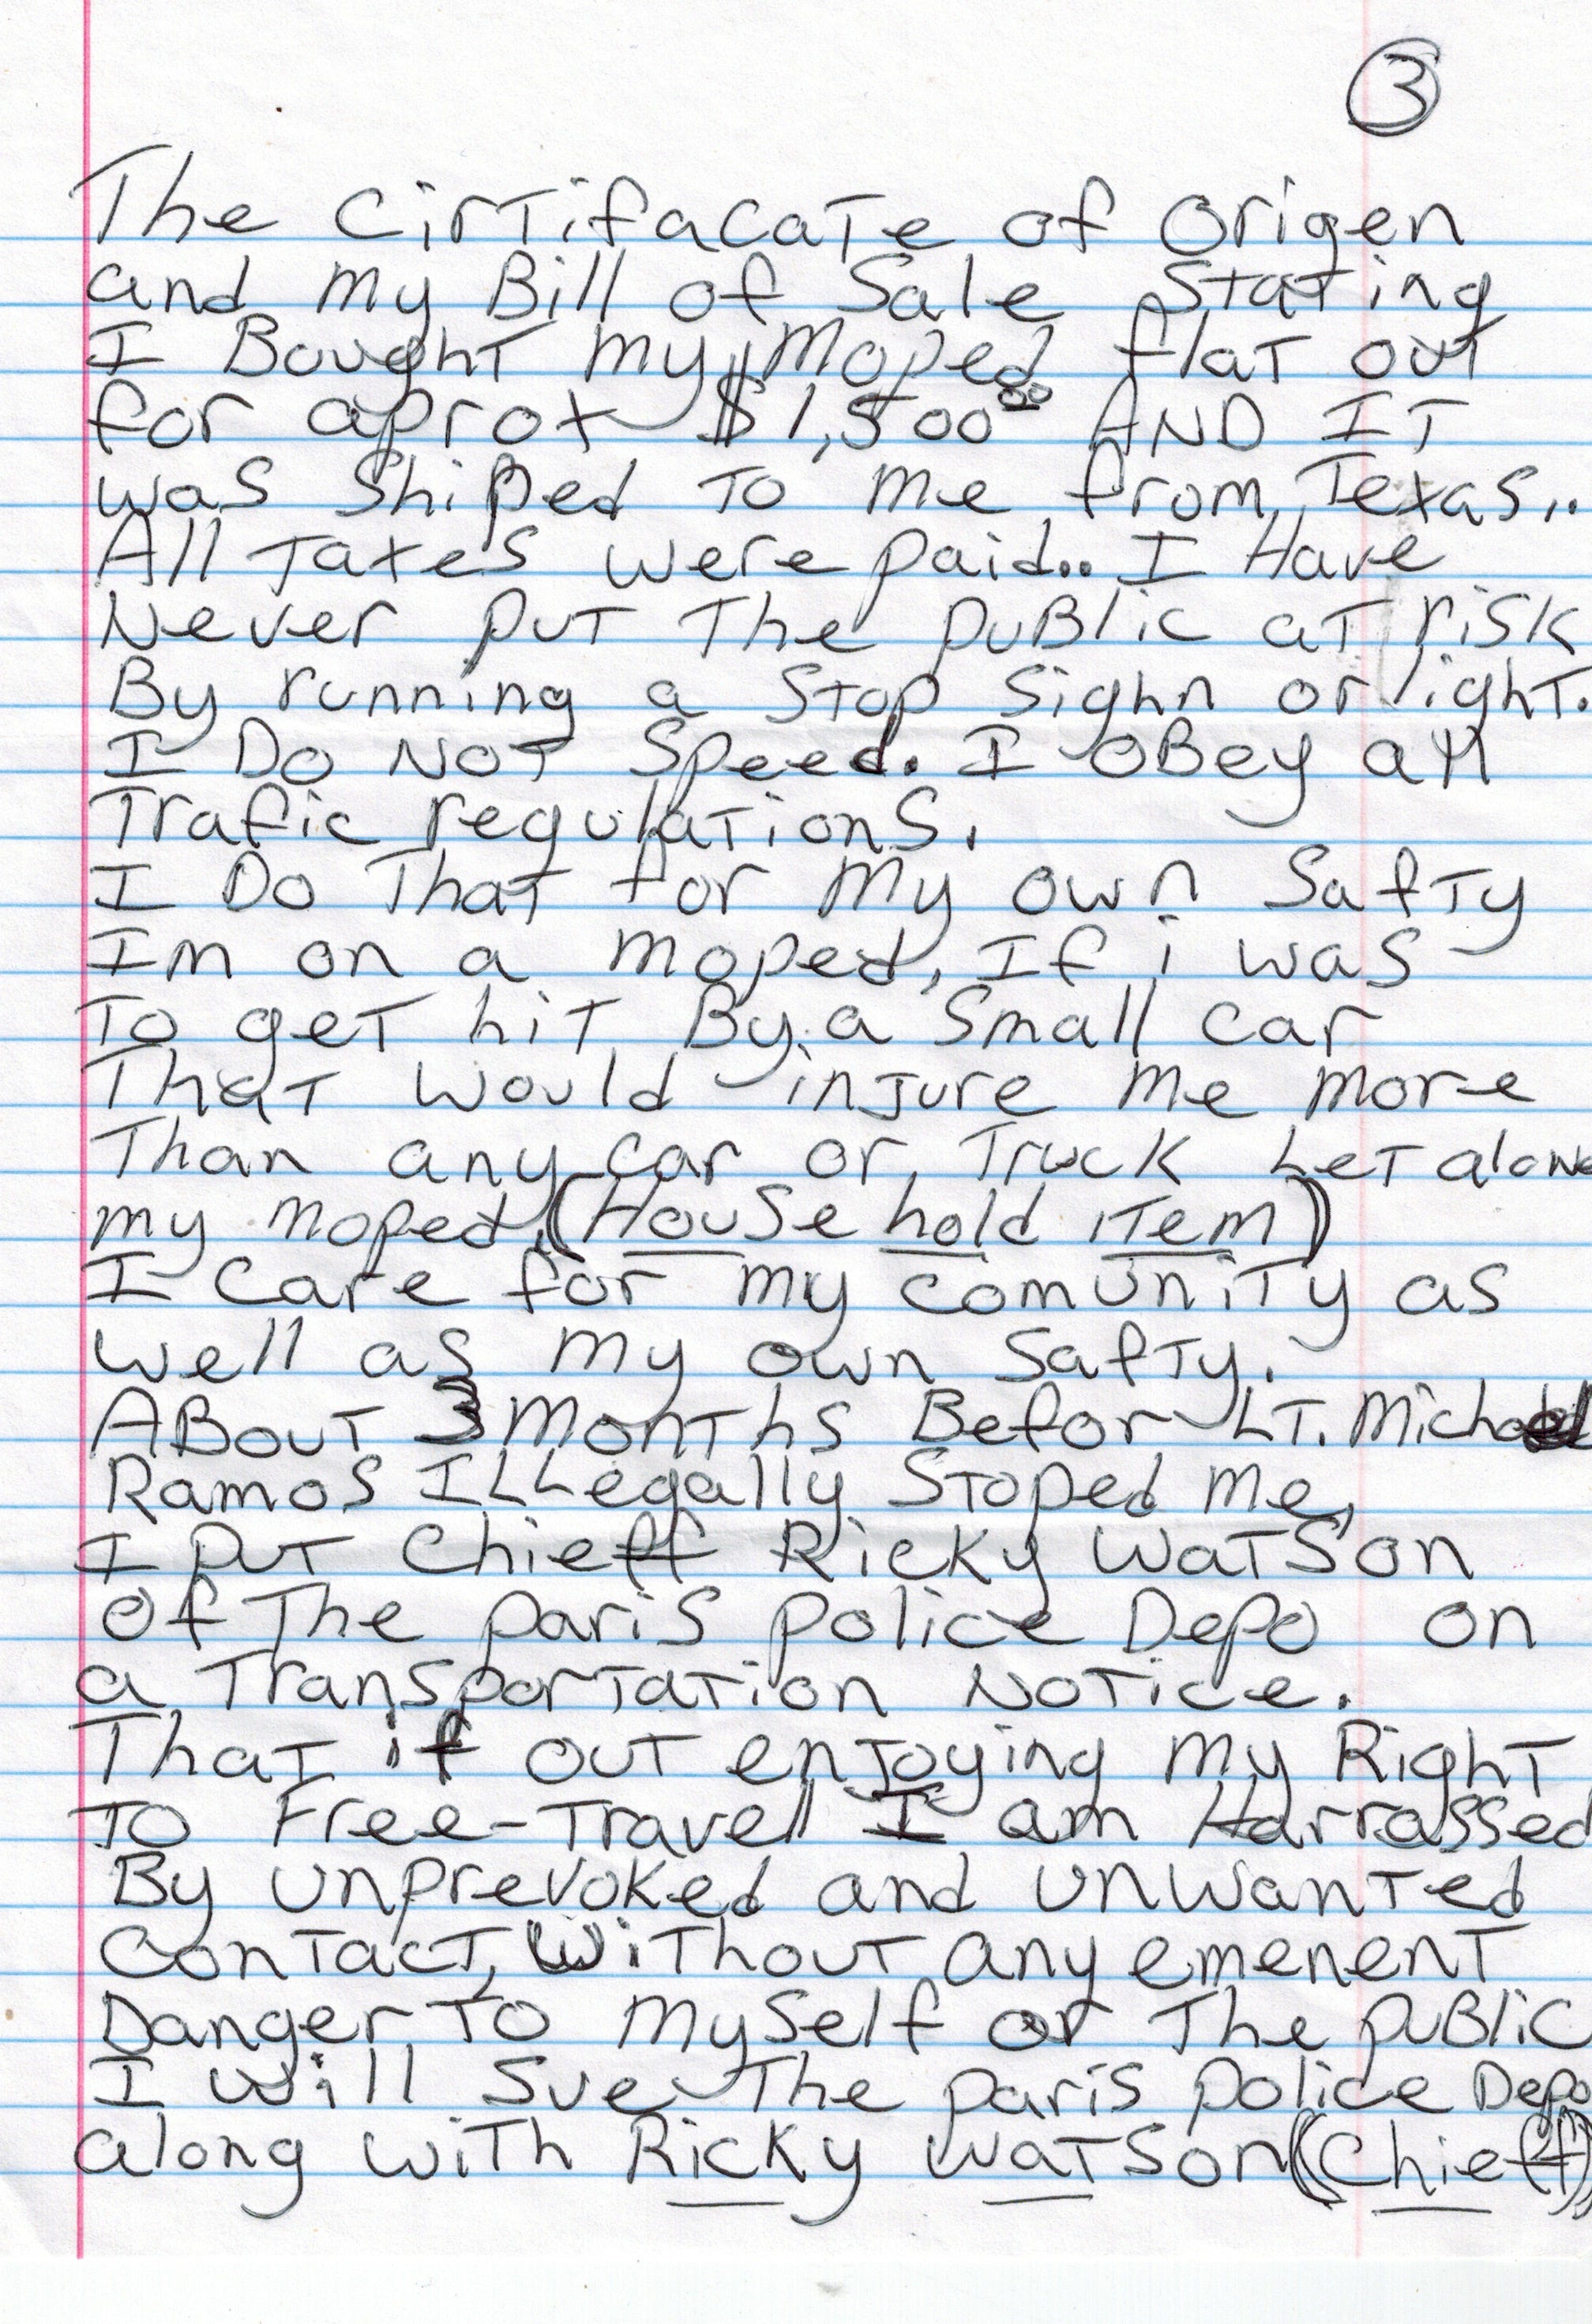 3
The Cirtifacate of origen
and my Bill of Sale Stating
I Bought my Moped flat out
for aprox $1,500⁰⁰ AND IT
was Shiped To me from Texas..
All Taxes were paid.. I Have
Never put The puBlic at risk
By running a Stop Sighn or light.
I Do Not Speed. I oBey all
Trafic regulations.
I Do That for my own Safty
Im on a moped, If i was
To get hit By a Small car
That would injure me more
Than any car or Truck LeT alone
my moped, (House hold item)
I care for my comunity as
well as my own Safty.
ABout 3 Months Befor LT. Michael
Ramos ILLegally Stoped me,
I put Chieff Ricky Watson
Of The paris police Depo on
a Transportation Notice.
That if out enjoying my Right
To Free-Travell I am Harrassed
By unprevoked and unwanted
contact, Without any emenent
Danger To myself or The puBlic
I will Sue The paris police Depo
along with Ricky Watson (Chieff)